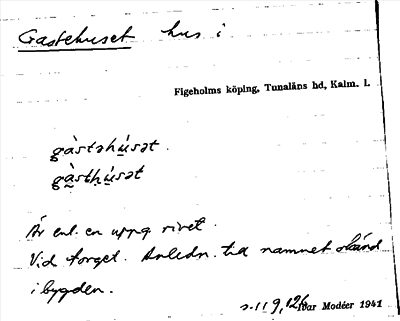 Gastehuset hus i
Figeholms köping, Tunaläns hd, Kalm. l.
gàstəhu̇́sət.
gàsth̥u̇́sət
Är enl. en uppg rivet.
Vid torget. Anledn. till namnet okänd
i bygden.
s. 11 9, 126 Ivar Modéer 1941